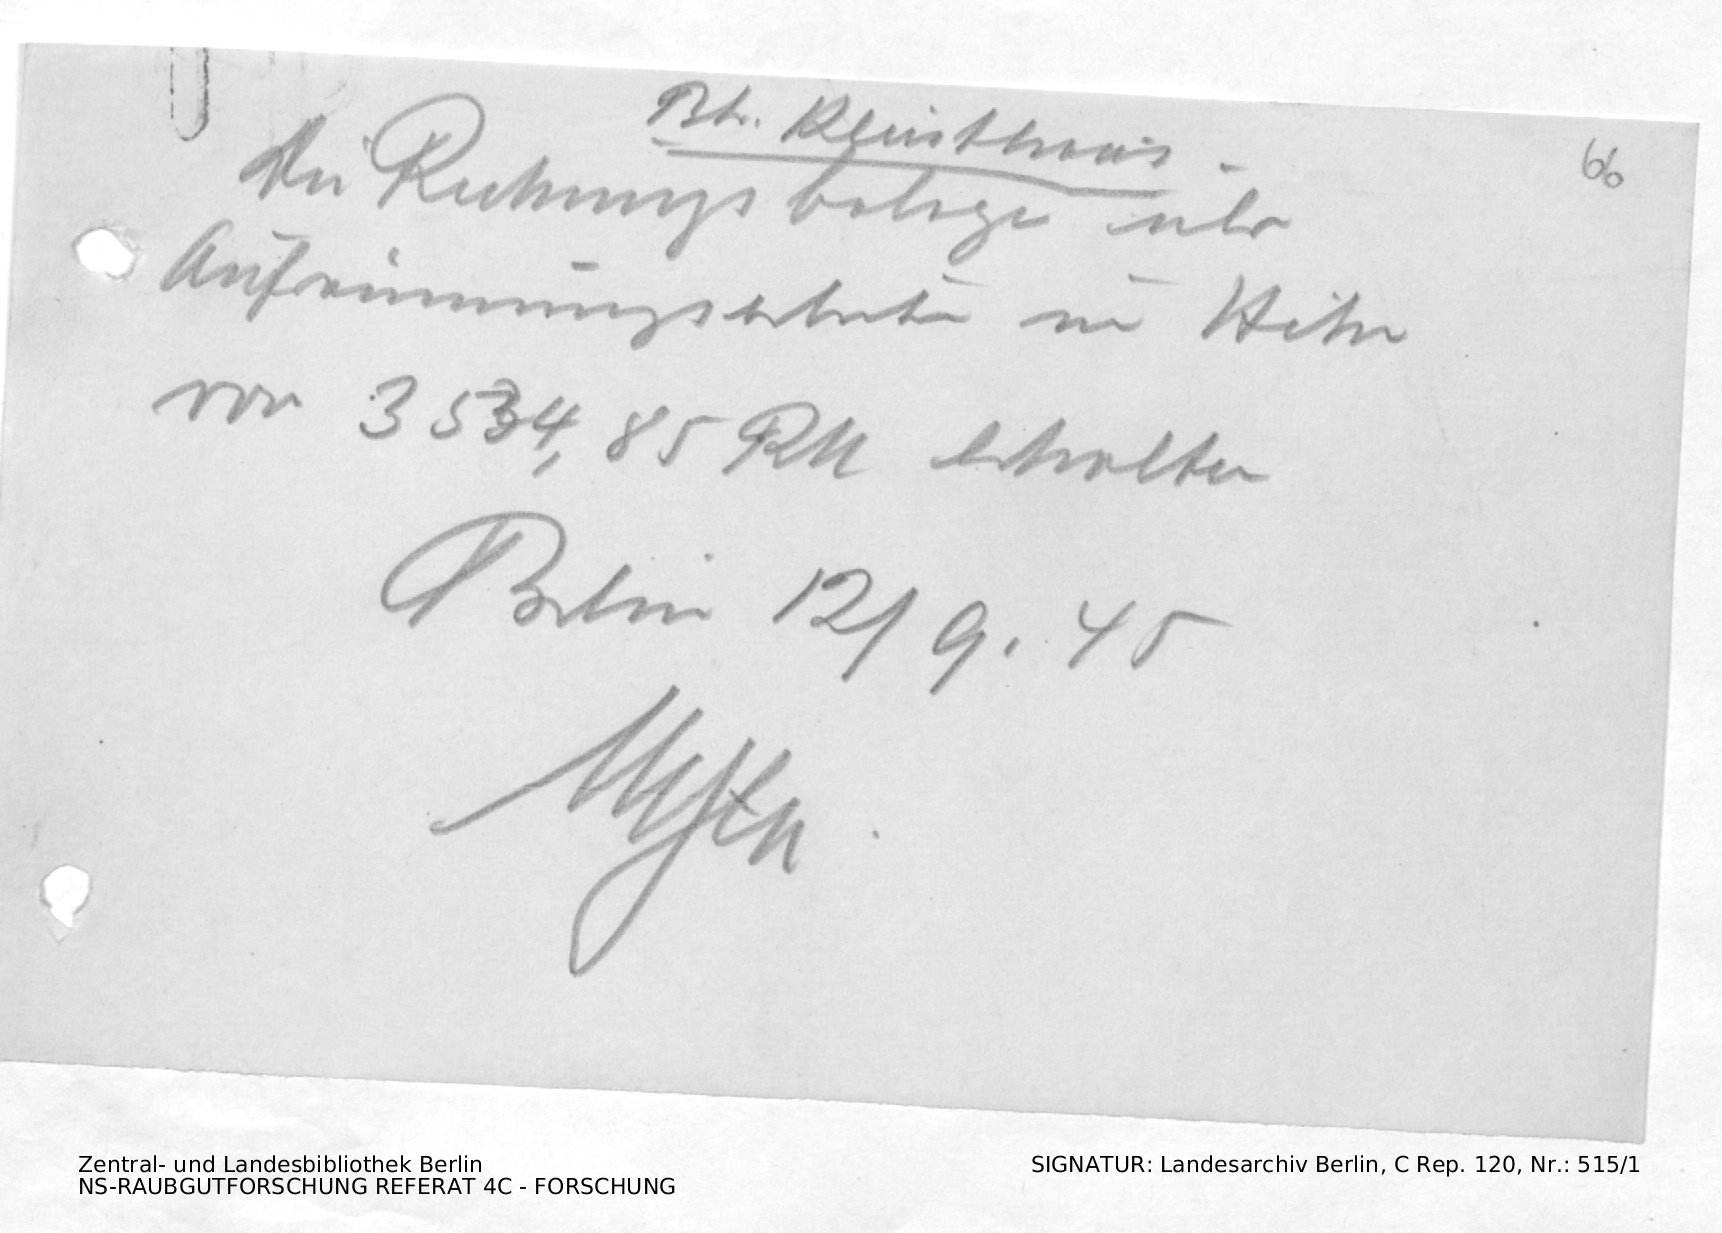 Btr. Kleisthaus.
66
Die Rechnungsbelege über
Aufräumungsarbeiten in Höhe
von 3534,85 RM erhalten
Berlin 12/9.45
Zentral- und Landesbibliothek Berlin
NS-RAUBGUTFORSCHUNG REFERAT 4C - FORSCHUNG
SIGNATUR: Landesarchiv Berlin, C Rep. 120, Nr.: 515/1